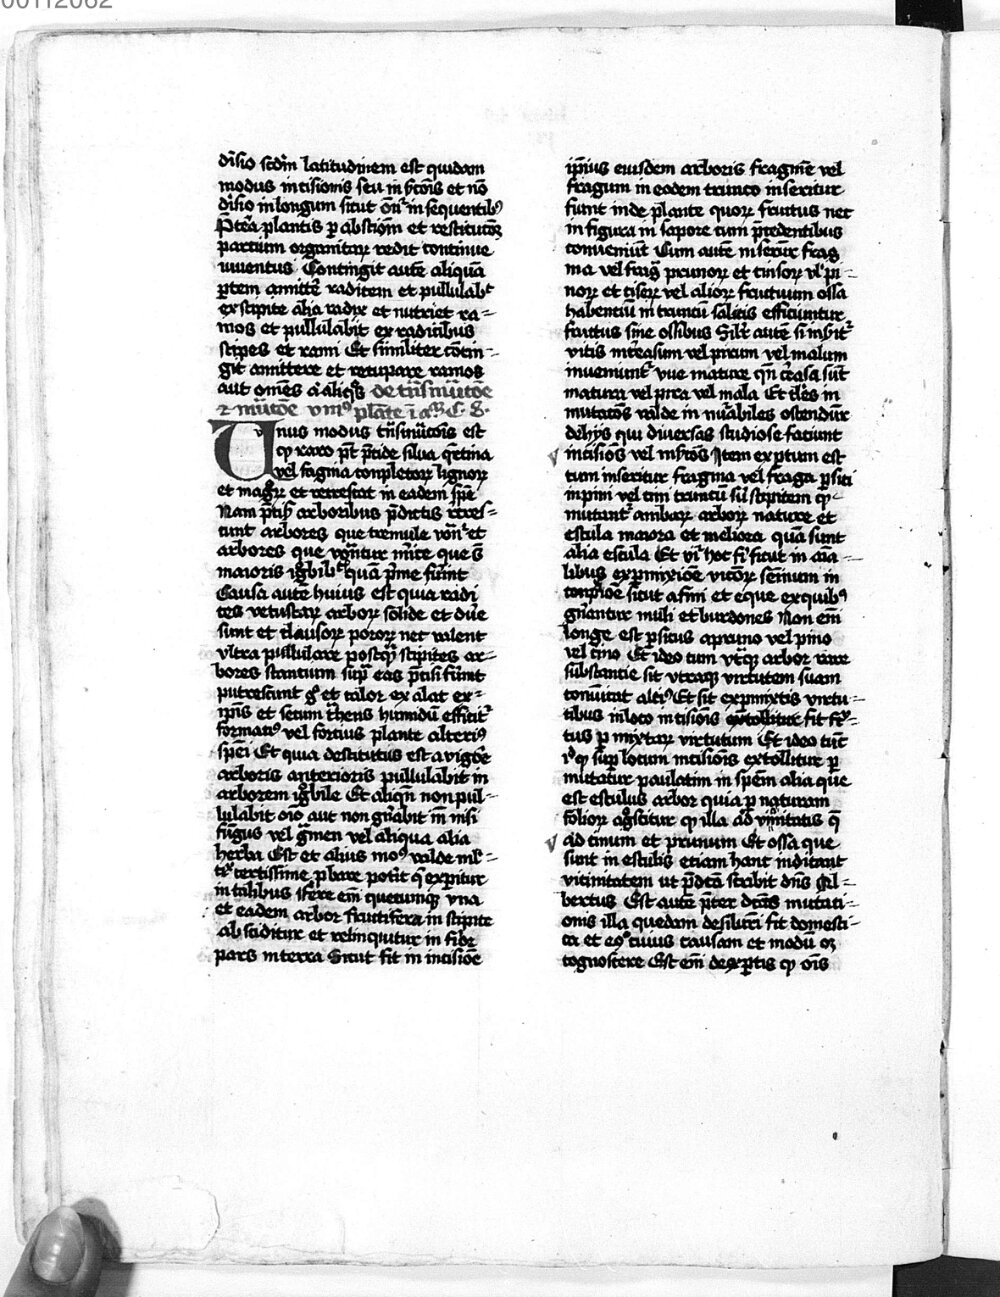 00112062
diĩsio scdm latitudinem est quidam
modus incisionis seu insc̃ois et nõ
diĩsio in longum sicut oñr in sequentibꝰ
Ptea plantis p abscisiõm et restitucõꝫ
parcium organicaꝝ redit continue
uiuentus Contingit autẽ aliquã
ptem amittẽ radicem et pullulabt
ex stipite alia radix et nutriet ra-
mos et pullulabit ex radicibus
stipes et rami Et similiter contin-
git amittere et recupare ramos
aut om̃es aut aliqͦs de tñsmutcõe
⁊ mutcõe vniꝰ plante i aliã C. 8.
Vnus modus tñsmutcõis est
qꝫ raro pt̃ ptide silua qrcina
vel fagina completoꝝ lignoꝝ
et magoꝝ et recrescat in eadem spẽ
Nam pciꝭ arboribus pdictis recres-
cunt arbores que tremule vonr et
arbores que vocãtur mirice que st̃
maioris ignobilitꝭ quã pme fuĩnt
Causa autẽ huius est quia radi
ces vetustaꝝ arboꝝ solide et dure
sunt et clausoꝝ poroꝝ nec valent
vltra pullulare postqꝫ stipites ar-
bores stantium sup eas pcisi fuĩnt
putrescunt gͦ et calor exalat ex-
ipĩs et secum trahens humidũ efficitr
formatiꝰ vel fortius plante alteriꝰ
spẽi Et quia destitutus est a vigõre
arboris anterioris pullulabit in
arborem ignobile Et aliqñ non pul-
lulabit oĩo aut non gñabit in nisi
fũgus vel gmen vel aliqua alia
herba Est et alius moꝰ valde ml-
tr certissime pbare potit q expitur
in talibus ss̃ere em̃ quecumqꝫ vna
et eadem arbor fructifera in stipite
absciditur et relinquitur in fide
pars in terra Sicut fit in incisiõe
ipĩus eiusdem arboris fragmẽ vel
fragum in eodem trunco inseritur
fiunt inde plante quoꝝ fructus nec
in figura ni sapore cum pcedentibus
conueniũt Cum autẽ inserũr frag
ma vel frag̃ prunoꝝ et cinsoꝝ vl pi-
noꝝ et ciseꝝ vel alioꝝ fructuum ossa
habentiũ in truncũ salicis efficiuntur
fructus sine ossibus Silr autẽ si insitr
vitis in cerasum vel pirum vel malum
inueniunt uue mature qñ cerasa sũt
matura vel pira vel mala Et tl̃es in
mutacõs valde in mirabiles ostendũr
de hijs qui diuersas studiose faciunt
incisiões vel insicõs Item exptum est
cum inseritur fragma vel fraga psici
in pini vel cini truncũ siĩ stipitem qꝫ
mutantr ambaꝝ arboꝝ nature et
escula maiora et meliora quã sunt
alia escula Et vr hoc fi sicut in aĩa-
libus ex pmixtiõe vitoꝝ seĩnum in
conpciõe sicut asini et eque ex quibꝰ
gñantur muli et burdones Non em̃
longe est psicus a pruno vel pino
vel cino Et ideo cum vtqꝫ arbor rare
substancie sit vtraqꝫ virtutem suam
conuincat alteriꝰ Et sic ex pmixtis virtu-
tibus in loco incisiõis extollitur fit fruc-
tus p mixtaꝝ virtutum Et ideo tũc
iꝰ qꝫ sup locum incisiõis extollitur p
mutatur paulatim in spẽm alia que
est esculus arbor quia p naturam
folioꝝ agͦscitur qꝫ illa ad vicinitatis q̃
ad cinum et prunum Et ossa que
sunt in esculis etiam hanc indicant
vicinitatem ut pdc̃a scribit dñs Al-
bertus Est autẽ pter dc̃as mutaci-
onis illa quedam de siluri fit domesti-
ca et eoꝰ cuius causam et modũ oꝫ
cognoscere Est em̃ de exptis qꝫ oĩs